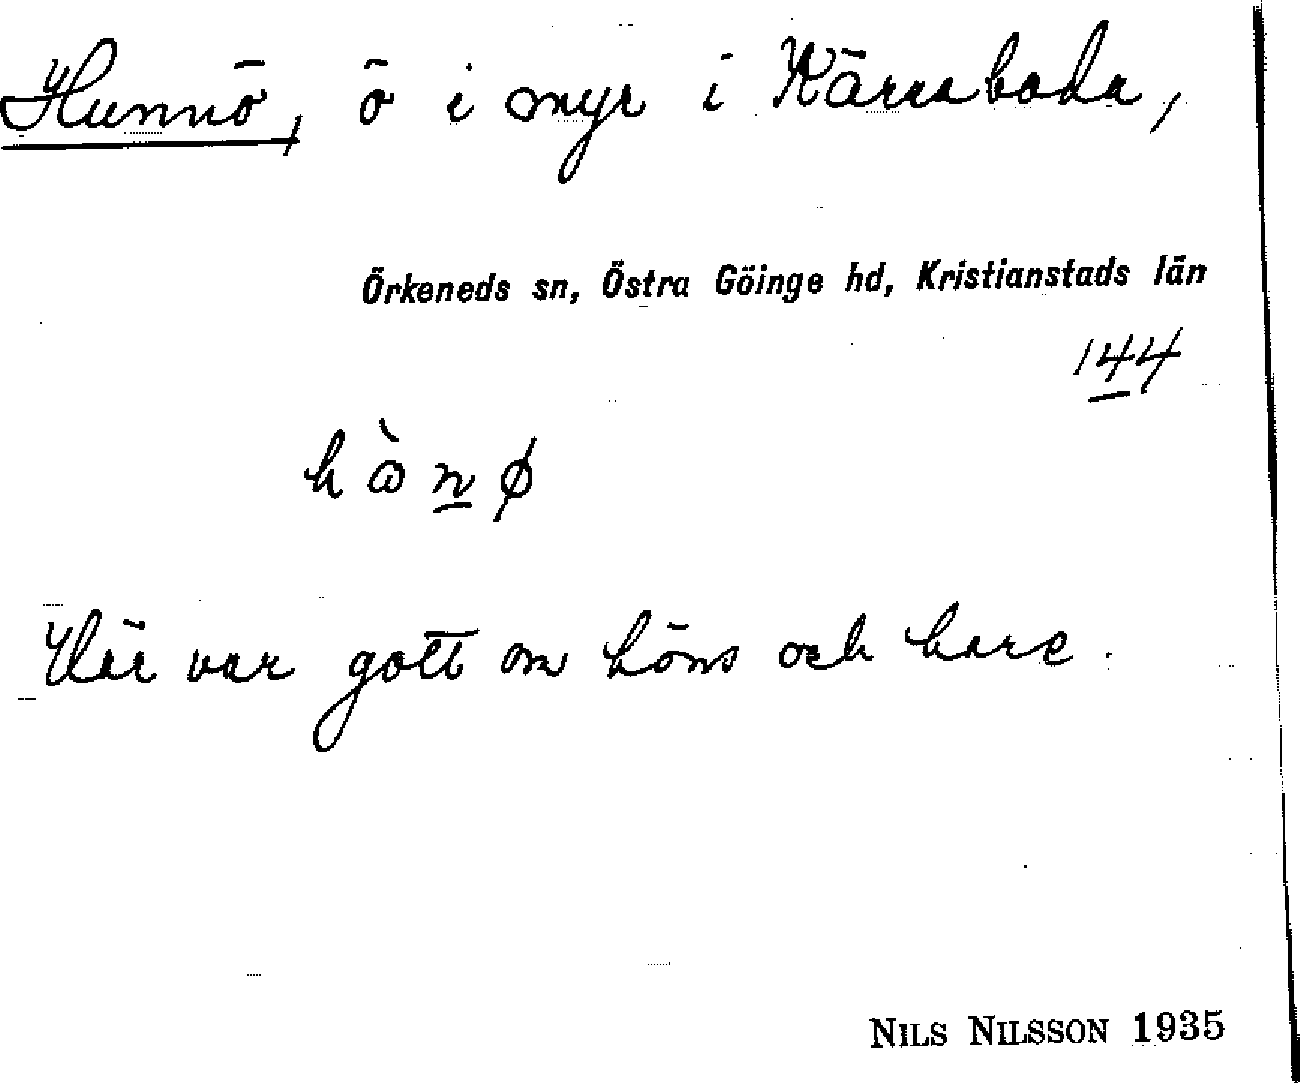 Hunnö, ö i myr i Kärraboda,
Örkeneds sn, Östra Göinge hd, Kristianstads län
144
hònø
Här var gott om höns och hare.
NILS NILSSON 1935